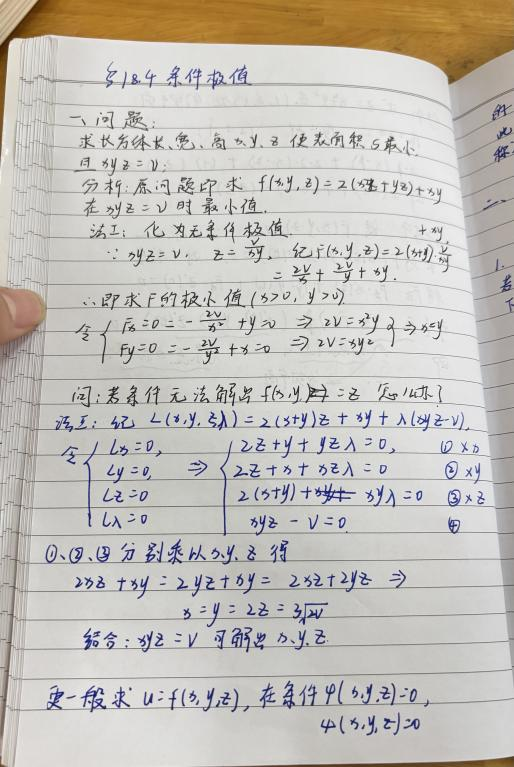 §18.4 条件极值
一、问题:
求长方体长、宽、高 x、y、z 使表面积 S 最小.
且 xyz = V;
分析: 原问题即求 f(x,y,z) = 2(xz + yz) + xy
在 xyz = V 时最小值.
法I: 化为无条件极值
∵ xyz = V. z = V/xy, 纪 F(x,y,z) = 2(x+y)·V/xy + xy,
= 2V/x + 2V/y + xy.
∴ 即求 F 的极小值 (x>0, y>0)
令 { Fx = 0 = -2V/x² + y = 0 ⇒ 2V = x²y
Fy = 0 = -2V/y² + x = 0 ⇒ 2V = xy² } ⇒ x=y
问: 若条件无法解出 f(x,y) = z 怎么办?
法II: 纪 L(x,y,z,λ) = 2(x+y)z + xy + λ(xyz-V),
令 { Lx = 0, ⇒ { 2z + y + yzλ = 0, ① ×x
Ly = 0, 2z + x + xzλ = 0 ② ×y
Lz = 0 2(x+y) + xyλ = 0 ③ ×z
Lλ = 0 xyz - V = 0. ④
①、②、③ 分别乘以 x、y、z 得
2xz + xy = 2yz + xy = 2xz + 2yz ⇒
x = y = 2z = ³√2V
结合: xyz = V 可解出 x、y、z.
更一般求 u = f(x,y,z), 在条件 φ(x,y,z) = 0,
ψ(x,y,z) = 0
二、
1.